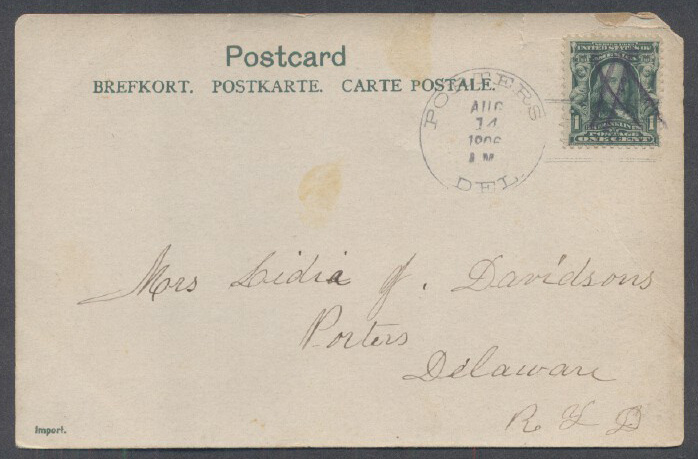 Postcard
BREFKORT. POSTKARTE. CARTE POSTALE.
PORTERS
AUG
14
1906
M
DEL.
1 1
FRANKLIN
POSTAGE
ONE CENT
Mrs Lidia J. Davidsons
Porters
Delaware
R F D
Import.